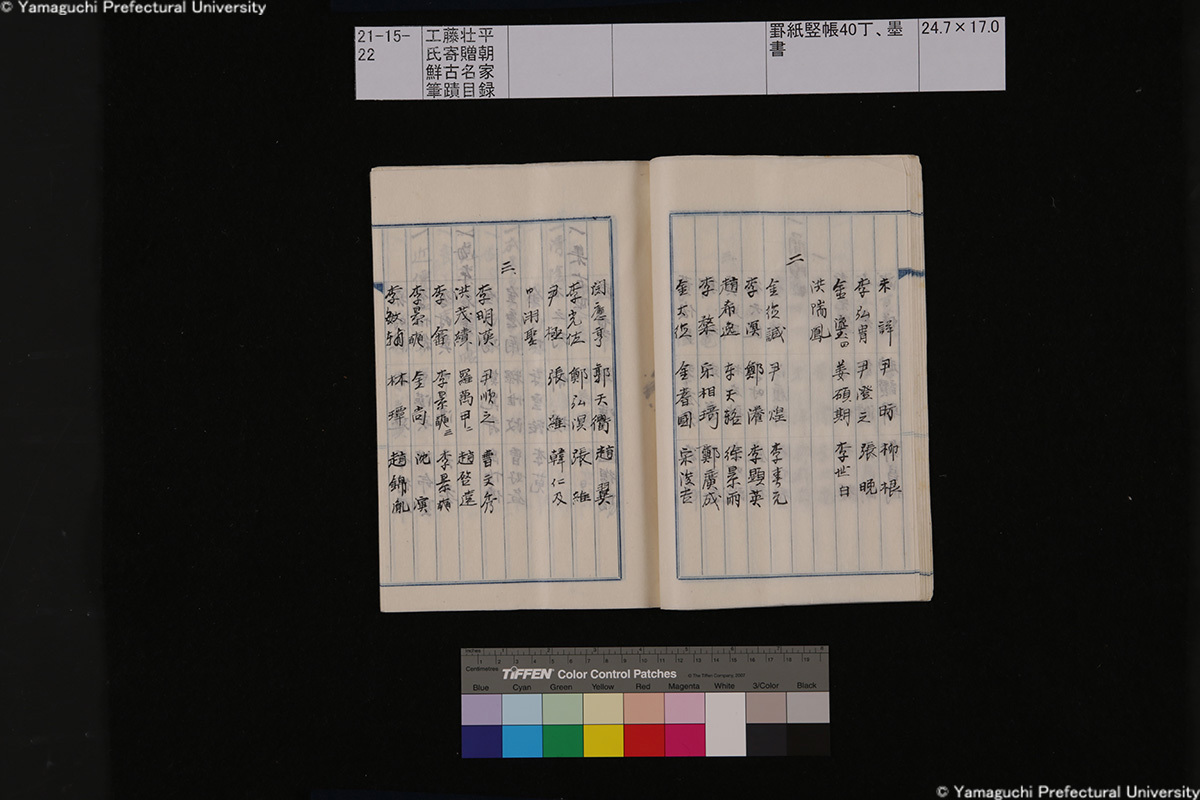 © Yamaguchi Prefectural University
21-15-22
工藤壮平氏寄贈朝鮮古名家筆蹟目録
罫紙竪帳40丁、墨書
24.7×17.0
宋祥 尹昉 柳根
李弘胄 尹澄之 張晩
金鎏 姜碩期 李世白
洪瑞鳳
二
金俊誠 尹煌 李春元
李溟 鄭澮 李顕英
趙希逸 李天 徐景雨
李 宋相琦 鄭廣成
金大俊 金蓍國 宋浚吉
閔應亨 郭天衢 趙翼
李光佐 鄭弘溟 張維
尹極 張維 韓仁及
申翊聖
三
李明漢 尹順之 曹文秀
洪茂績 羅萬甲 趙啓遠
李 李景奭 李景
李景奭 金尚 沈演
李敏 林墰 趙錦胤
inches
Centimetres
TIFFEN Color Control Patches
© The Tiffen Company, 2007
Blue Cyan Green Yellow Red Magenta White 3/Color Black
© Yamaguchi Prefectural University